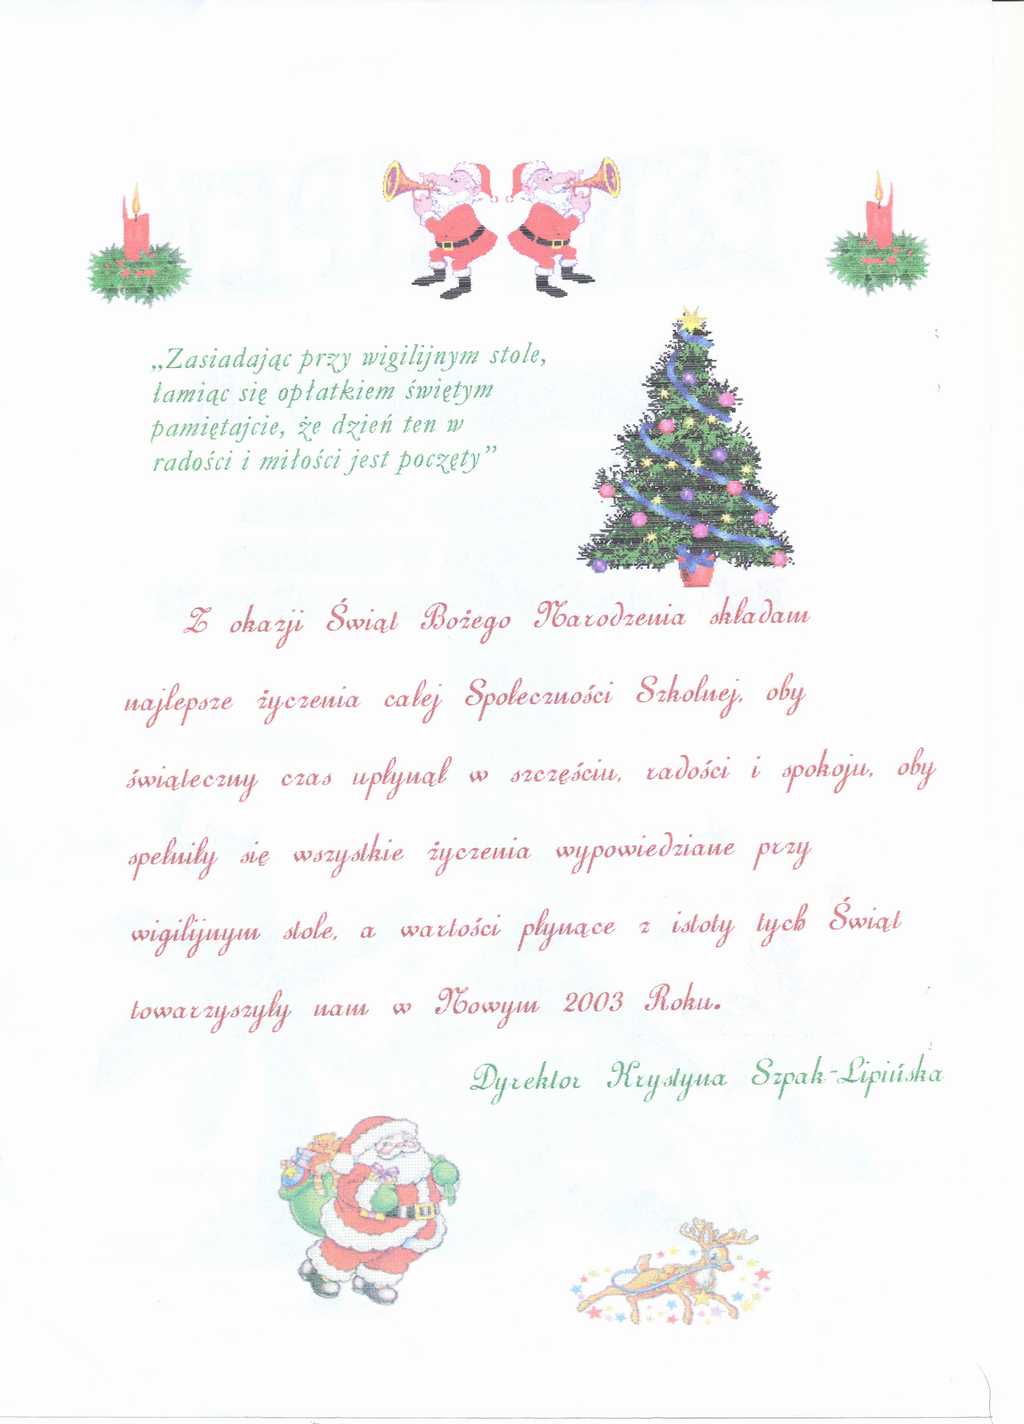 „Zasiadając przy wigilijnym stole,
łamiąc się opłatkiem świętym
pamiętajcie, że dzień ten w
radości i miłości jest poczęty”
Z okazji Świąt Bożego Narodzenia składam
najlepsze życzenia całej Społeczności Szkolnej, oby
świąteczny czas upłynął w szczęściu, radości i spokoju, oby
spełniły się wszystkie życzenia wypowiedziane przy
wigilijnym stole, a wartości płynące z istoty tych Świąt
towarzyszyły nam w Nowym 2003 Roku.
Dyrektor Krystyna Szpak-Lipińska